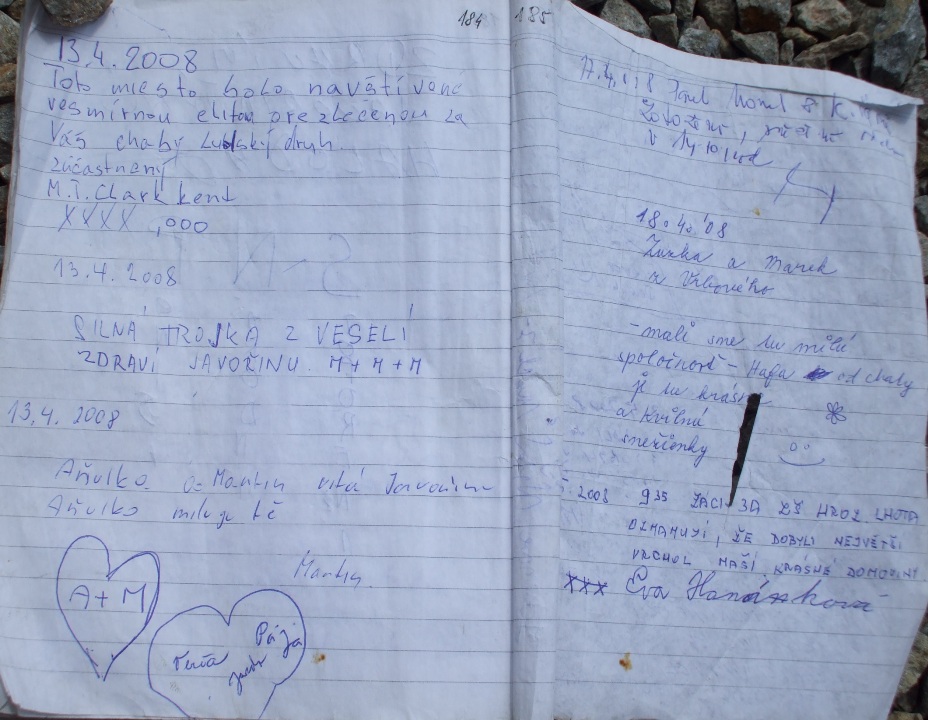 184
13.4.2008
Toto miesto bolo navštívené
vesmírnou elitou prezlečenou za
Váš chabý Ludský druh.
zúčastnený
M.T. Clark kent
XXXX ,000
13.4.2008
SILNÁ TROJKA Z VESELÍ
ZDRAVÍ JAVOŘINU. M+M+M
13.4.2008
Aňulka a Martin vítá Javorinu
Aňulko miluju tě
Martin
A+M
Verča
Pája
185
v 14.10
18.4.'08
Zuzka a Marek
z Vrbového
-mali sme tu milú
spoločnosť - Hafa od chaty
je tu
a kvitnú
snežienky
2008 935 ŽÁCI 3A ZŠ HROZ. LHOTA
OZNAMUJÍ, ŽE DOBYLI NEJVĚTŠÍ
VRCHOL NAŠÍ KRÁSNÉ DOMOVINY
XXX Eva